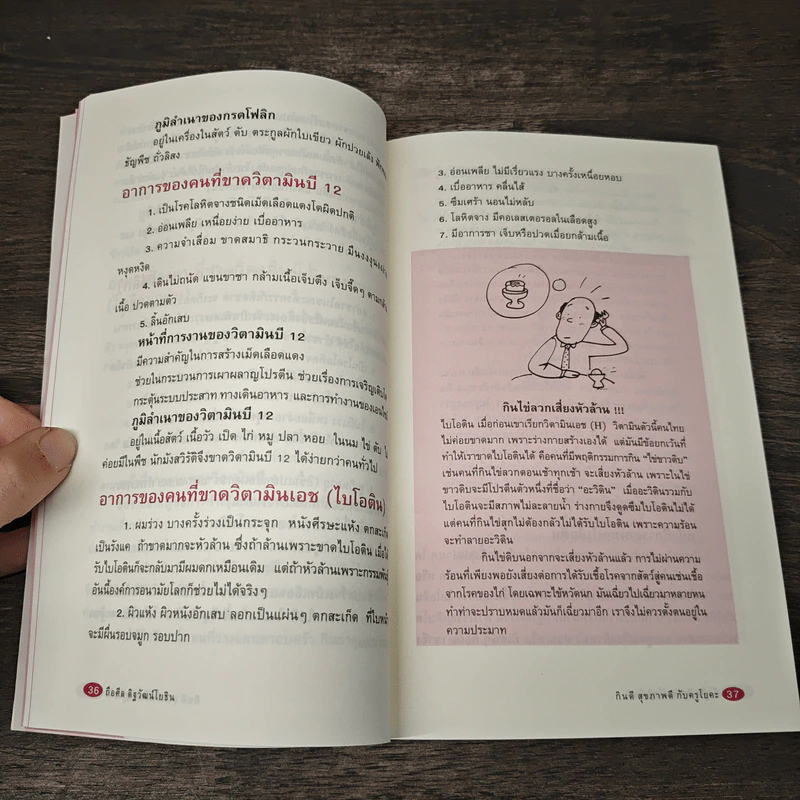 ภูมิลำเนาของกรดโฟลิก
อยู่ในเครื่องในสัตว์ ตับ ตระกูลผักใบเขียว ผักปวยเล้ง
ธัญพืช ถั่วลิสง
อาการของคนที่ขาดวิตามินบี 12
1. เป็นโรคโลหิตจางชนิดเม็ดเลือดแดงโตผิดปกติ
2. อ่อนเพลีย เหนื่อยง่าย เบื่ออาหาร
3. ความจำเสื่อม ขาดสมาธิ กระวนกระวาย มึนงง
หงุดหงิด
4. เดินไม่ถนัด แขนขาชา กล้ามเนื้อเจ็บตึง เจ็บจี๊ดๆ ตามกล้าม
เนื้อ ปวดตามตัว
5. ลิ้นอักเสบ
หน้าที่การงานของวิตามินบี 12
มีความสำคัญในการสร้างเม็ดเลือดแดง
ช่วยในกระบวนการเผาผลาญโปรตีน ช่วยเรื่องการเจริญเติบโต
กระตุ้นระบบประสาท ทางเดินอาหาร และการทำงานของเอนไซม์
ภูมิลำเนาของวิตามินบี 12
อยู่ในเนื้อสัตว์ เนื้อวัว เป็ด ไก่ หมู ปลา หอย ในนม ไข่ ตับ
ค่อยมีในพืช นักมังสวิรัติจึงขาดวิตามินบี 12 ได้ง่ายกว่าคนทั่วไป
อาการของคนที่ขาดวิตามินเอช (ไบโอติน)
1. ผมร่วง บางครั้งร่วงเป็นกระจุก หนังศีรษะแห้ง ตกสะเก็ด
เป็นรังแค ถ้าขาดมากจะหัวล้าน ซึ่งถ้าล้านเพราะขาดไบโอติน เมื่อได้
รับไบโอตินก็จะกลับมามีผมดกเหมือนเดิม แต่ถ้าหัวล้านเพราะกรรมพันธุ์
อันนี้องค์การอนามัยโลกก็ช่วยไม่ได้จริงๆ
2. ผิวแห้ง ผิวหนังอักเสบ ลอกเป็นแผ่นๆ ตกสะเก็ด ที่ใบหน้า
จะมีผื่นรอบจมูก รอบปาก
36 ถือศีล ดิฐวัฒน์โยธิน
3. อ่อนเพลีย ไม่มีเรี่ยวแรง บางครั้งเหนื่อยหอบ
4. เบื่ออาหาร คลื่นไส้
5. ซึมเศร้า นอนไม่หลับ
6. โลหิตจาง มีคอเลสเตอรอลในเลือดสูง
7. มีอาการชา เจ็บหรือปวดเมื่อยกล้ามเนื้อ
กินไข่ลวกเสี่ยงหัวล้าน !!!
ไบโอติน เมื่อก่อนเขาเรียกวิตามินเอช (H) วิตามินตัวนี้คนไทย
ไม่ค่อยขาดมาก เพราะร่างกายสร้างเองได้ แต่มันมีข้อยกเว้นที่
ทำให้เราขาดไบโอตินได้ คือคนที่มีพฤติกรรมการกิน "ไข่ขาวดิบ"
เช่นคนที่กินไข่ลวกตอนเช้าทุกเช้า จะเสี่ยงหัวล้าน เพราะในไข่
ขาวดิบจะมีโปรตีนตัวหนึ่งที่ชื่อว่า "อะวิดิน" เมื่ออะวิดินรวมกับ
ไบโอตินจะมีสภาพไม่ละลายน้ำ ร่างกายจึงดูดซึมไบโอตินไม่ได้
แต่คนที่กินไข่สุกไม่ต้องกลัวไม่ได้รับไบโอติน เพราะความร้อน
จะทำลายอะวิดิน
กินไข่ดิบนอกจากจะเสี่ยงหัวล้านแล้ว การไม่ผ่านความ
ร้อนที่เพียงพอยังเสี่ยงต่อการได้รับเชื้อโรคจากสัตว์สู่คนเช่นเชื้อ
จากโรคของไก่ โดยเฉพาะไข้หวัดนก มันเฉี่ยวไปเฉี่ยวมาหลายหน
ทำท่าจะปราบหมดแล้วมันก็เฉี่ยวมาอีก เราจึงไม่ควรตั้งตนอยู่ใน
ความประมาท
กินดี สุขภาพดี กับครูโยคะ 37